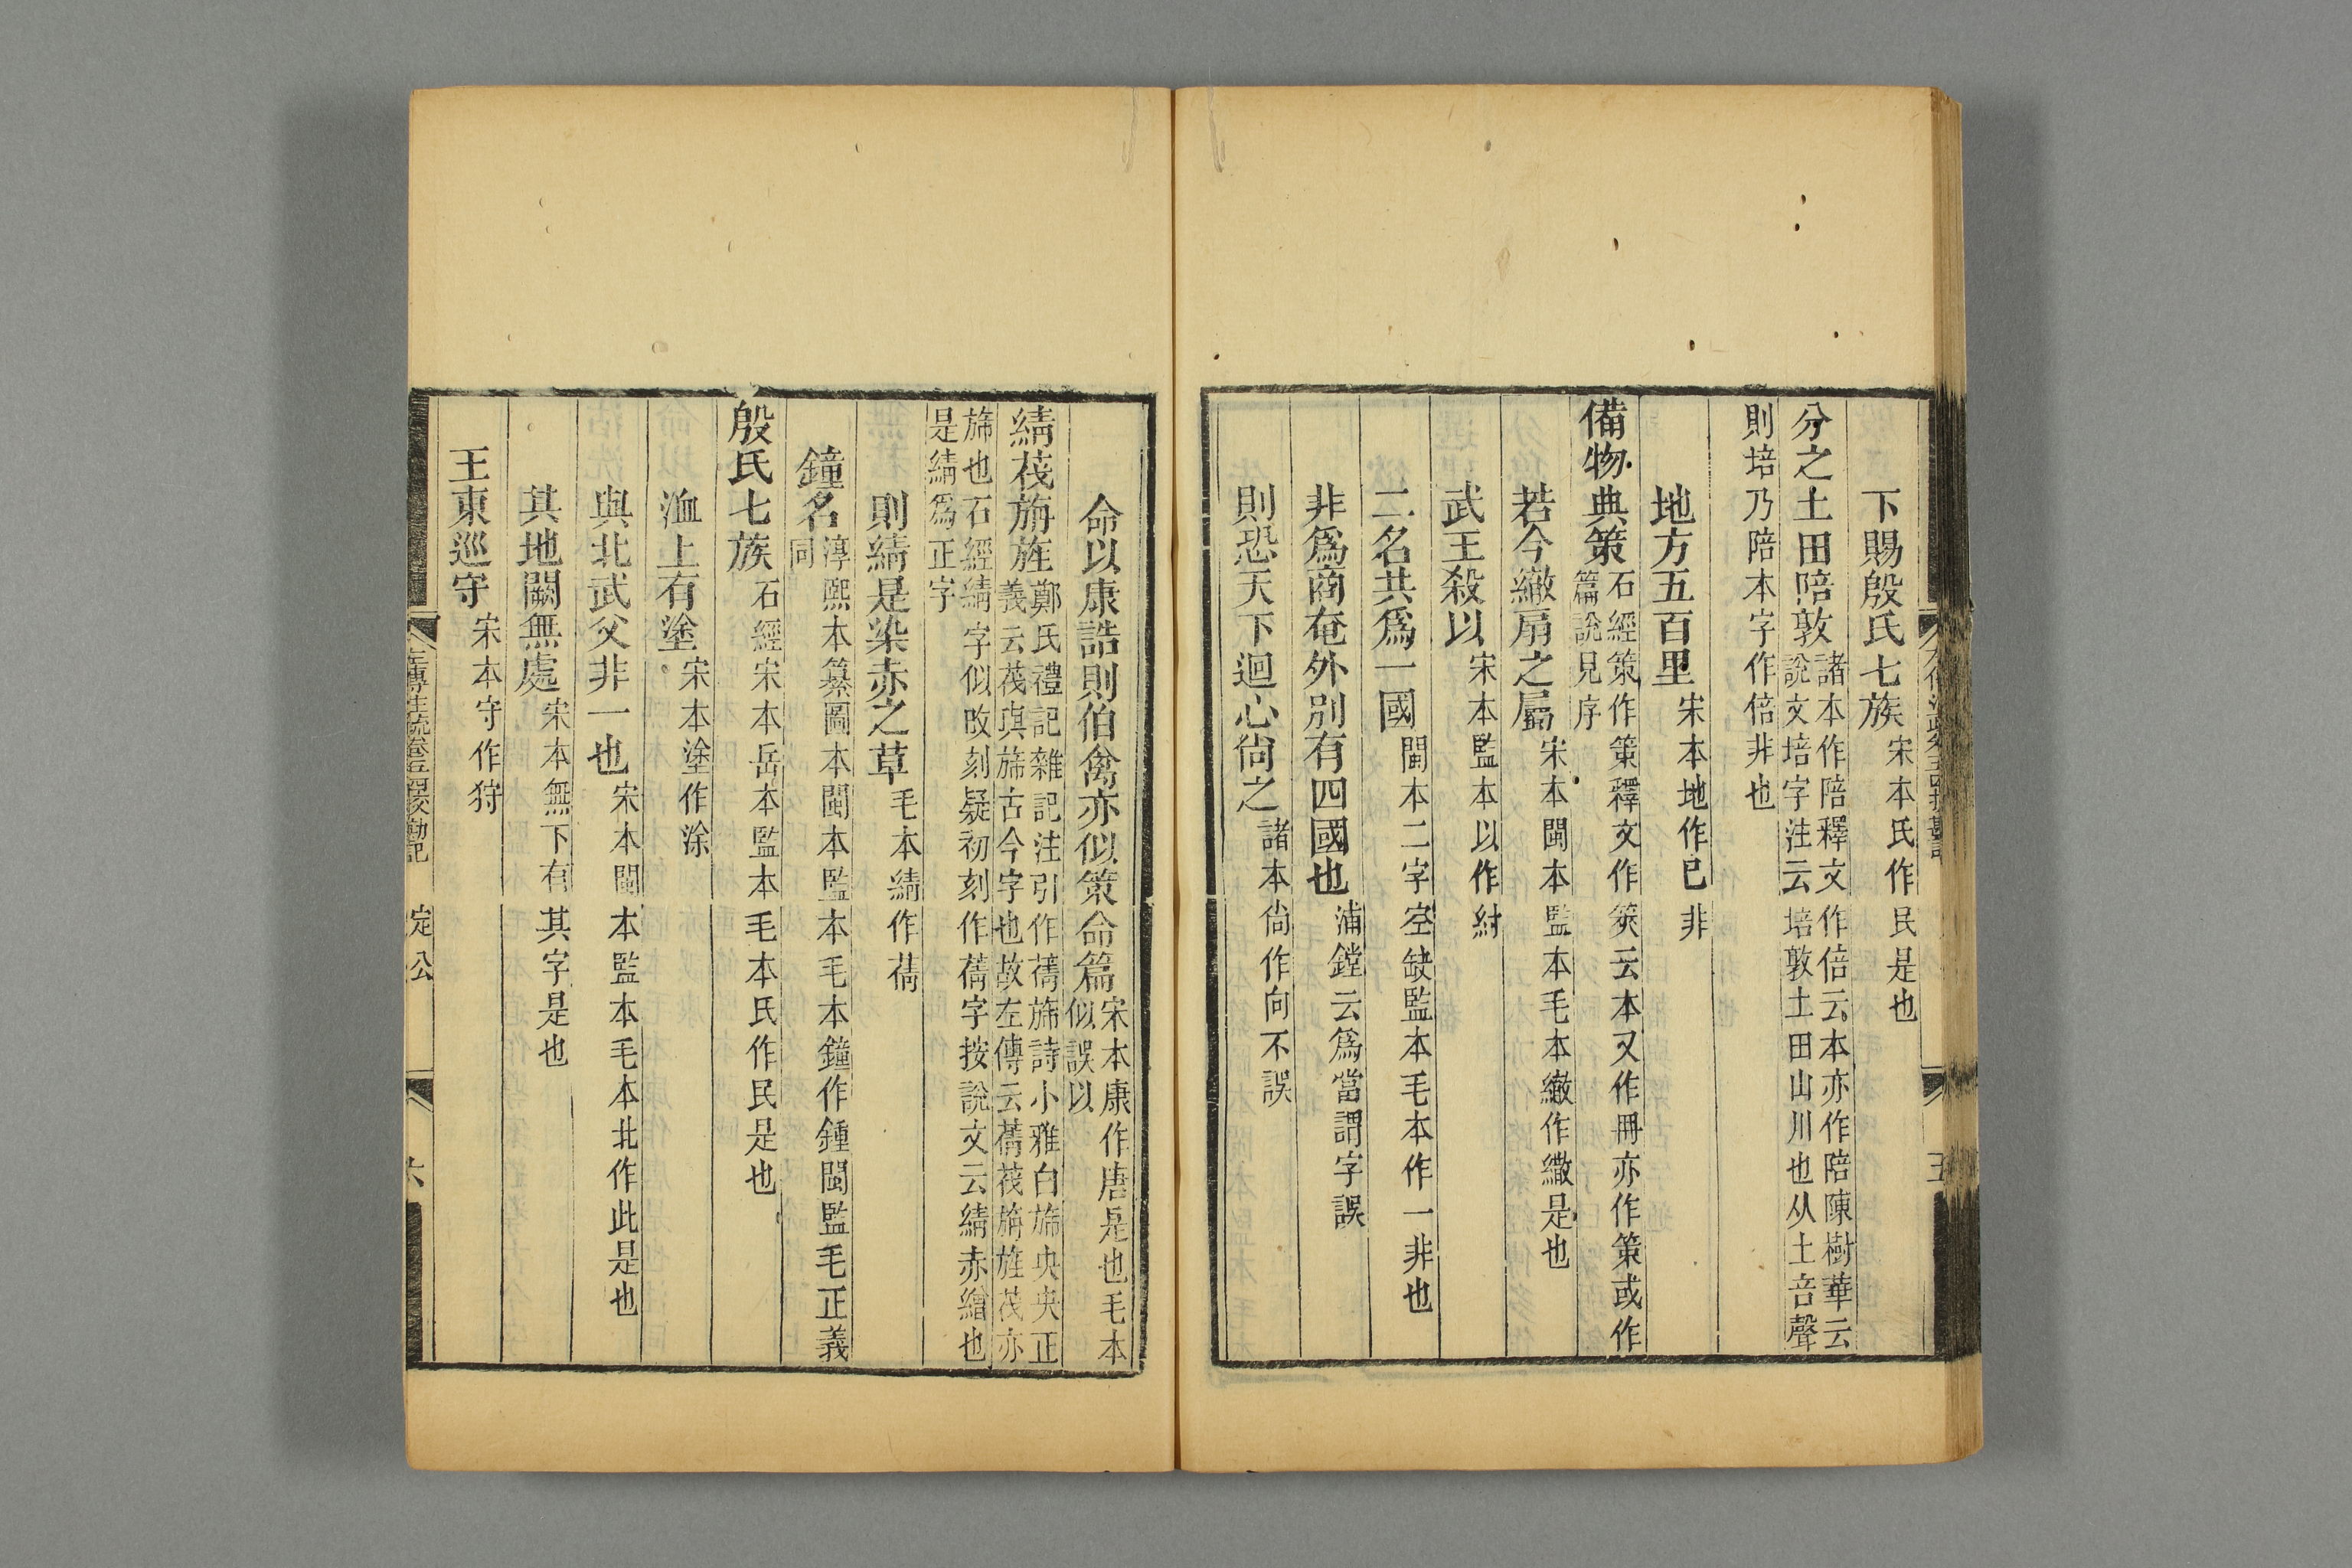 下賜殷氏七族宋本氏作民是也
分之土田陪敦諸本作陪釋文作倍云本亦作陪陳樹華云
說文培字注云培敦土田山川也从土咅聲
則培乃陪本字作倍非也
地方五百里宋本地作已非
備物典策石經策作策釋文作筴云本又作冊亦作策或作
篇說見序
若今繖扇之屬宋本閩本監本毛本繖作繖是也
武王殺以宋本監本以作紂
二名共爲一國閩本二字空缺監本毛本作一非也
非爲商奄外別有四國也浦鏜云爲當謂字誤
則恐天下迴心尙之諸本尙作向不誤
命以康誥則伯禽亦似策命篇宋本康作唐是也毛本
似誤以
綪茷旃旌鄭氏禮記雜記注引作蒨旆詩小雅白旆央央正
義云茷與旆古今字也故左傳云蒨茷旃旌茷亦
旆也石經綪字似改刻疑初刻作蒨字按說文云綪赤繒也
是綪爲正字
則綪是染赤之草毛本綪作蒨
鐘名淳熙本纂圖本閩本監本毛本鐘作鍾閩監毛正義
同
殷氏七族石經宋本岳本監本毛本氏作民是也
洫上有塗宋本塗作涂
與北武父非一也宋本閩本監本毛本北作此是也
其地闕無處宋本無下有其字是也
王東巡守宋本守作狩
左傳注疏卷五十四校勘記 定公 六